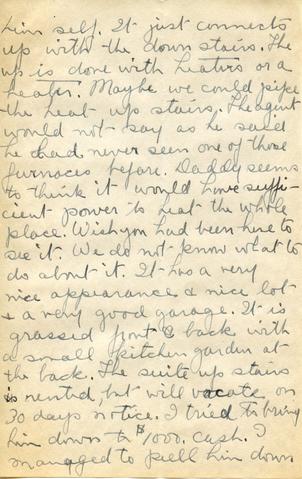 him self. It just connects
up with the down stairs. The
up is done with heaters or a
heater. Maybe we could pipe
the heat up stairs. The agent
would not say as he said
he had never seen one of those
furnaces before. Daddy seems
to think it would have suffi-
cient power to heat the whole
place. Wish you had been here to
see it. We do not know what to
do about it. It has a very
nice appearance & nice lot
& a very good garage. It is
grassed front & back with
a small kitchen garden at
the back. The suite up stairs
is rented but will vacate on
30 days notice. I tried to bring
him down to $1000. cash. I
managed to pull him down